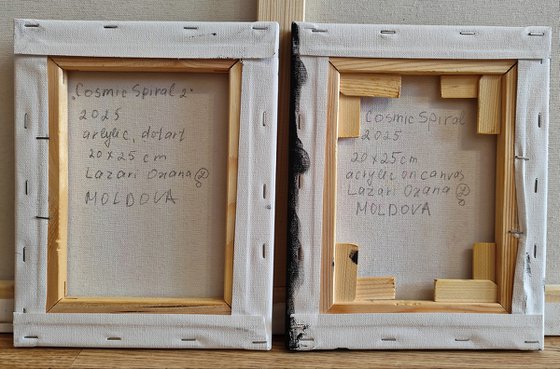 "Cosmic Spiral 2"
2025
arcylic, dotart
20x25 cm
Lazari Oxana
MOLDOVA
Cosmic Spiral
2025
20x25cm
acrylic on canvas
Lazari Oxana
MOLDOVA